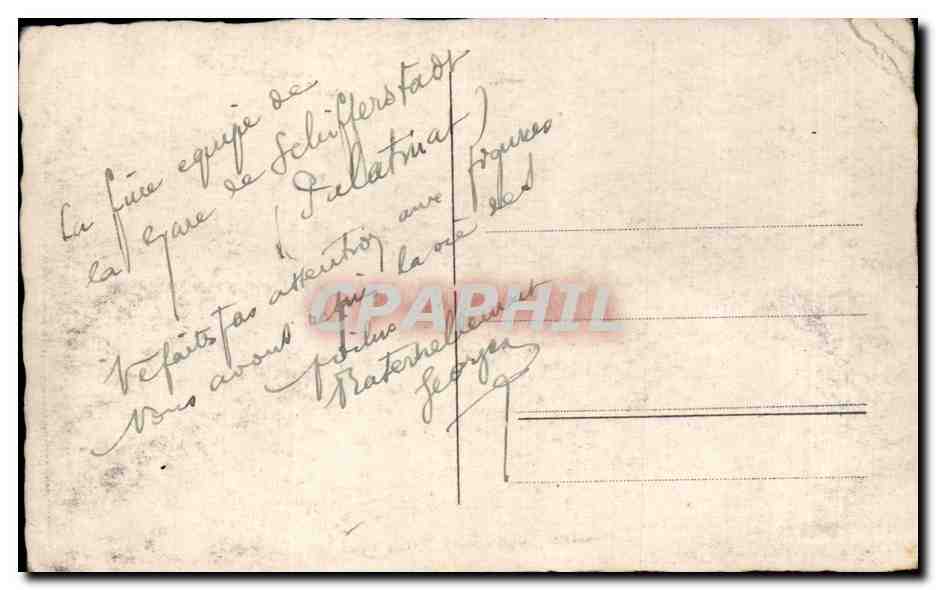 La fine equipe de
la gare de Schifferstadt
(Palatinat)
Ne faits pas attention aux figures
Nous avons la vie des
poilus
Fraternellement
Georges
CPAPHIL